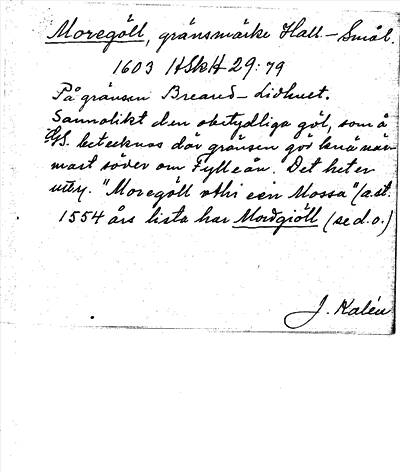 Moregöll, gränsmärke Hall - Smål.
1603 HSkH 29:79
På gränsen Breared - Lidhult.
Sannolikt den obetydliga göl, som å
G/S. betecknas där gränsen gör knä när-
mast söder om Fylleån. Det heter
uttry. "Moregöll uthi een Mossa" (a.st.
1554 års lista har Mordgiöll (se d.o.)
J. Kalén